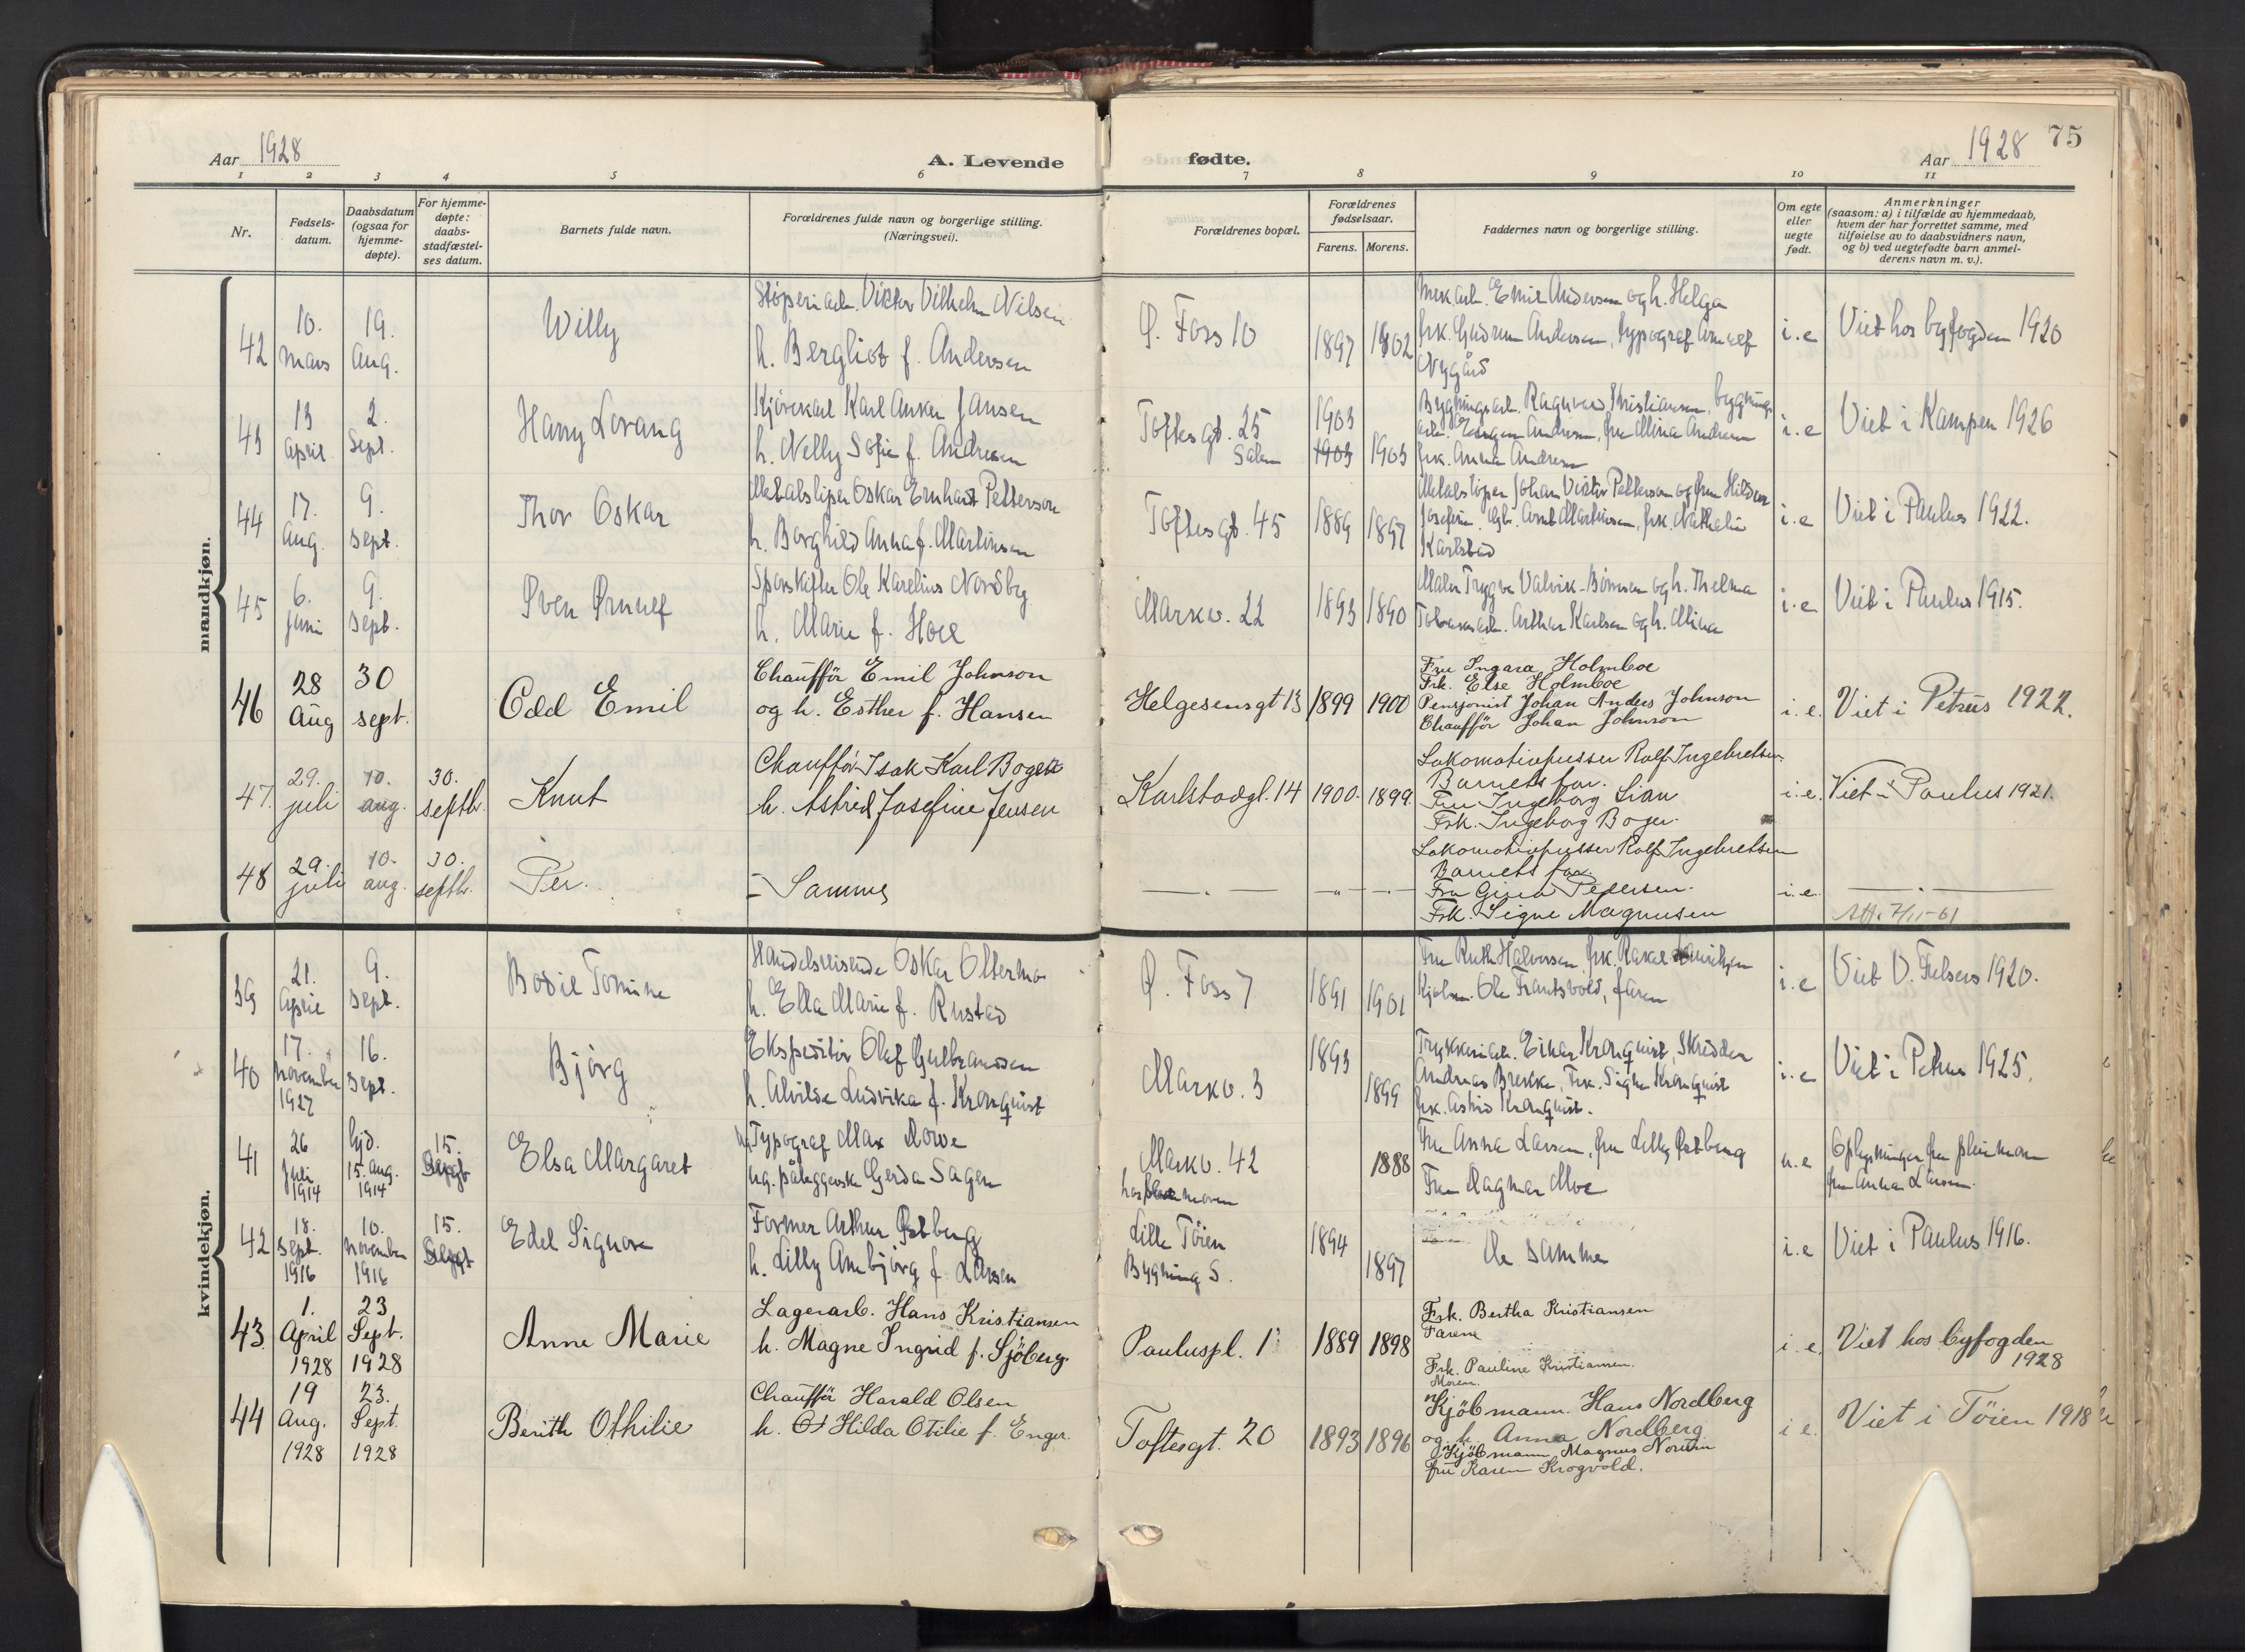 Aar 1928
A. Levende
fødte.
Aar 1928
75
1 2 3 4 5 6 7 8 9 10 11
Nr.
Fødsels-
datum.
Daabsdatum
(ogsaa for
hjemme-
døpte).
For hjemme-
døpte:
daabs-
stadfæstel-
ses datum.
Barnets fulde navn.
Forældrenes fulde navn og borgerlige stilling.
(Næringsvei).
Forældrenes bopæl.
Forældrenes
fødselsaar.
Farens. Morens.
Faddernes navn og borgerlige stilling.
Om egte
eller
uegte
født.
Anmerkninger
(saasom: a) i tilfælde av hjemmedaab,
hvem der har forrettet samme, med
tilføielse av to daabsvidners navn,
og b) ved uegtefødte barn anmel-
derens navn m. v.).
mandkjøn.
42
10.
mars
19.
Aug.
Willy
Støperiarb. Viktor Vilhelm Nilsen
h. Bergliot f. Andersen
Ø. Foss 10
1897
1902
Mek.arb. Emil Andersen og h. Helga
frk. Gudrun Andersen, typograf
Nygård
i. e
Viet hos byfogden 1920
43
13
April
2.
Sept.
Harry Lorang
Kjørekarl Karl Anker Jansen
h. Nelly Sofie f. Andresen
Toftesgt. 25
1903
1903
1903
Bygningsarb. Ragnvald Kristiansen, bygnings-
arb. Andresen, fru Mina Andresen
frk. Anna Andresen
i. e
Viet i Kampen 1926
44
17.
Aug.
9.
Sept.
Thor Oskar
Metalsliper Oskar Ernhart Petterson
h. Borghild Anna f. Martinsen
Toftesgt. 45
1889
1897
Metalsliper Johan Viktor Petterson og fru Hildur
Josefine, Arnt Martinsen, frk. Nathalie
Karlstad
i. e
Viet i Paulus 1922.
45
6.
juni
9.
Sept.
Sven Ørnulf
Sporskifter Ole Karelius Nordby
h. Marie f. Hoel
Markv. 22
1893
1890
Maler Trygve Valvik-Børresen og h. Thelma
Tobaksarb. Arthur Karlsen og h. Mina
i. e
Viet i Paulus 1915.
46
28
Aug
30
sept.
Odd Emil
Chaufför Emil Johnson
og h. Esther f. Hansen
Helgesensgt 13
1899
1900
Fru Ingara Holmboe
Frk. Else Holmboe
Pensjonist Johan Anders Johnson
Chaufför Johan Johnson
i. e.
Viet i Petrus 1922.
47.
29.
juli
10.
aug.
30.
septbr.
Knut
Chauffør Isak Karl Boger
h. Astrid Josefine Jensen
Karlstadgt. 14
1900.
1899.
Lokomotivpusser Rolf Ingebretsen.
Barnets far.
Fru Ingeborg Lian
Frk. Ingeborg Boger.
i. e.
Viet i Paulus 1921.
48
29.
juli
10.
aug.
30.
septbr.
Per.
= Samme
— . —
— „ —
Lokomotivpusser Rolf Ingebretsen
Barnets far.
Fru Gina Pedersen.
Frk. Signe Magnusen
i. e.
— . —
Att. 7/11-61
kvindekjøn.
39
21.
April
9.
Sept.
Bodil Tomine
Handelsreisende Oskar Oltermo
h. Ella Marie f. Rustad
Ø. Foss 7
1891
1901
Fru Ruth Halvorsen, frk. Rakel
Kjøbm. Ole Frantsvold, faren
i. e
Viet V. 1920.
40
17.
november
1927
16.
Sept.
Bjørg
Ekspeditør Olaf Gulbrandsen
h. Alvilde Ludvika f. Kronquist
Markv. 3
1893
1899
Trykkeriarb. Einar Kronquist, Skredder
Andreas Brekke, Frk. Signe Kronquist
frk. Astrid Kronquist.
i. e
Viet i Petrus 1925.
41
26
Juli
1914
hjd.
15. aug.
1914
15.
Sept
Elsa Margaret
Typograf Max
ug. pålæggerske Gerda Sagen
Markv. 42
hos moren
1888
Fru Anna Larsen, fru Lilly Østberg
Fru Dagmar Moe
u. e
Oplysninger fra pleiemoren
fru Anna Larsen.
42
18.
Sept.
1916
10.
november
1916
15.
Sept
Edel Signora
Former Arthur Østberg
h. Lilly Ambjørg f. Larsen
Lille Tøien
Bygning S.
1894
1897
De samme
i. e
Viet i Paulus 1916.
43.
1.
April
1928
23
Sept.
1928
Anne Marie
Lagerarb. Hans Kristiansen
h. Magne Ingrid f. Sjöberg.
Pauluspl. 1
1889
1898
Frk. Bertha Kristiansen
Faren
Frk. Pauline Kristiansen.
Moren.
i. e.
Viet hos byfogden
1928
44
19
Aug.
1928
23.
Sept.
1928
Berith Othilie
Chaufför Harald Olsen
h. Ot Hilda Otilie f. Enger.
Toftesgt. 20
1893
1896
Kjöbmann. Hans Nordberg
og h. Anna Nordberg
Kjöbmann Magnus
fru Karen Krogvold.
i e.
Viet i Töien 1918